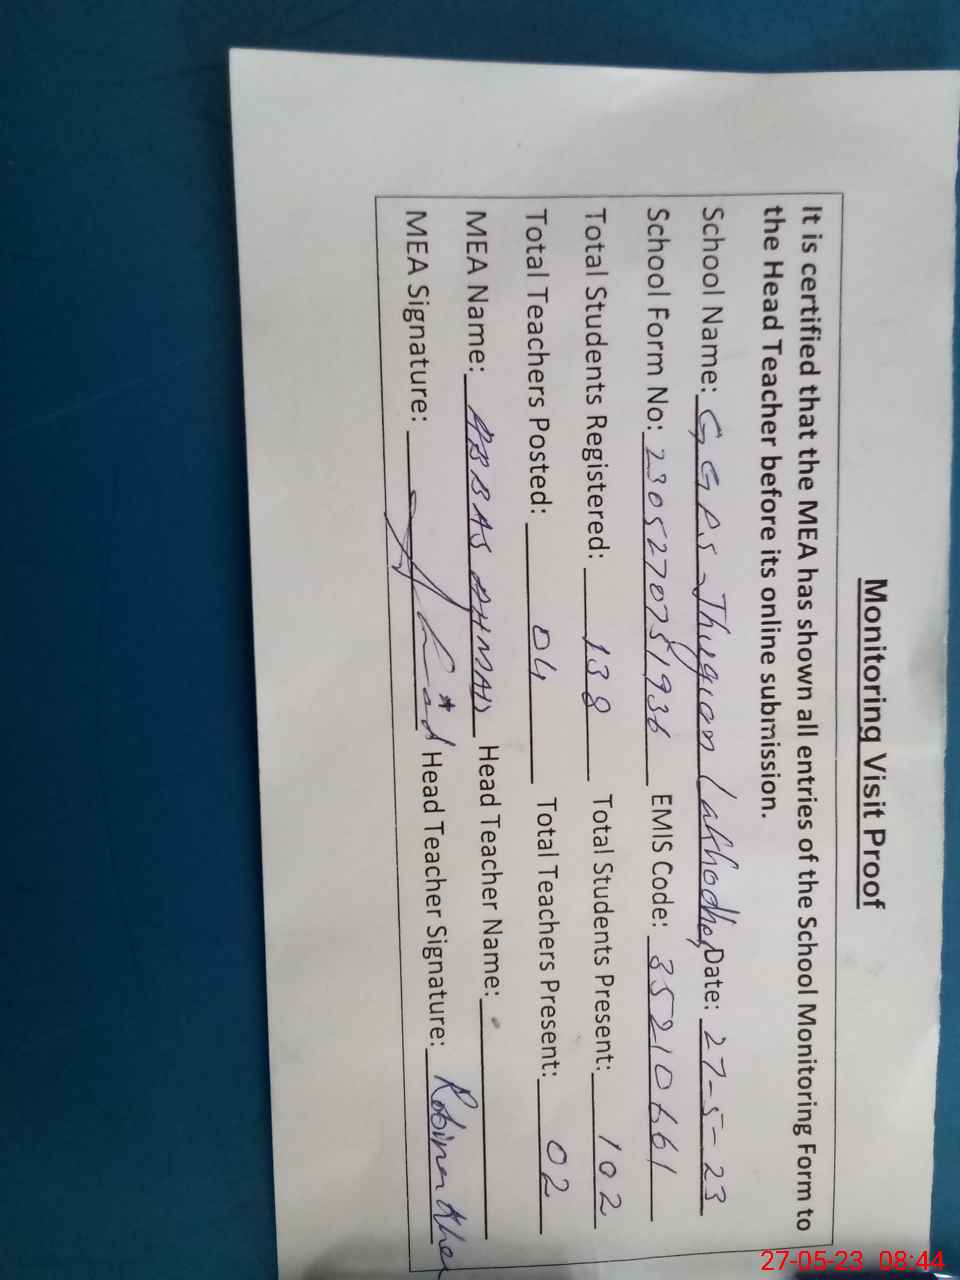 Monitoring Visit Proof
It is certified that the MEA has shown all entries of the School Monitoring Form to
the Head Teacher before its online submission.
School Name: GGPS Thugion Lakhodher Date: 27-5-23
School Form No: 2305270751936 EMIS Code: 35210661
Total Students Registered: 138 Total Students Present: 102
Total Teachers Posted: 04 Total Teachers Present: 02
MEA Name: ABBAS AHMAD Head Teacher Name:
MEA Signature: Head Teacher Signature: Robina
27-05-23 08:44